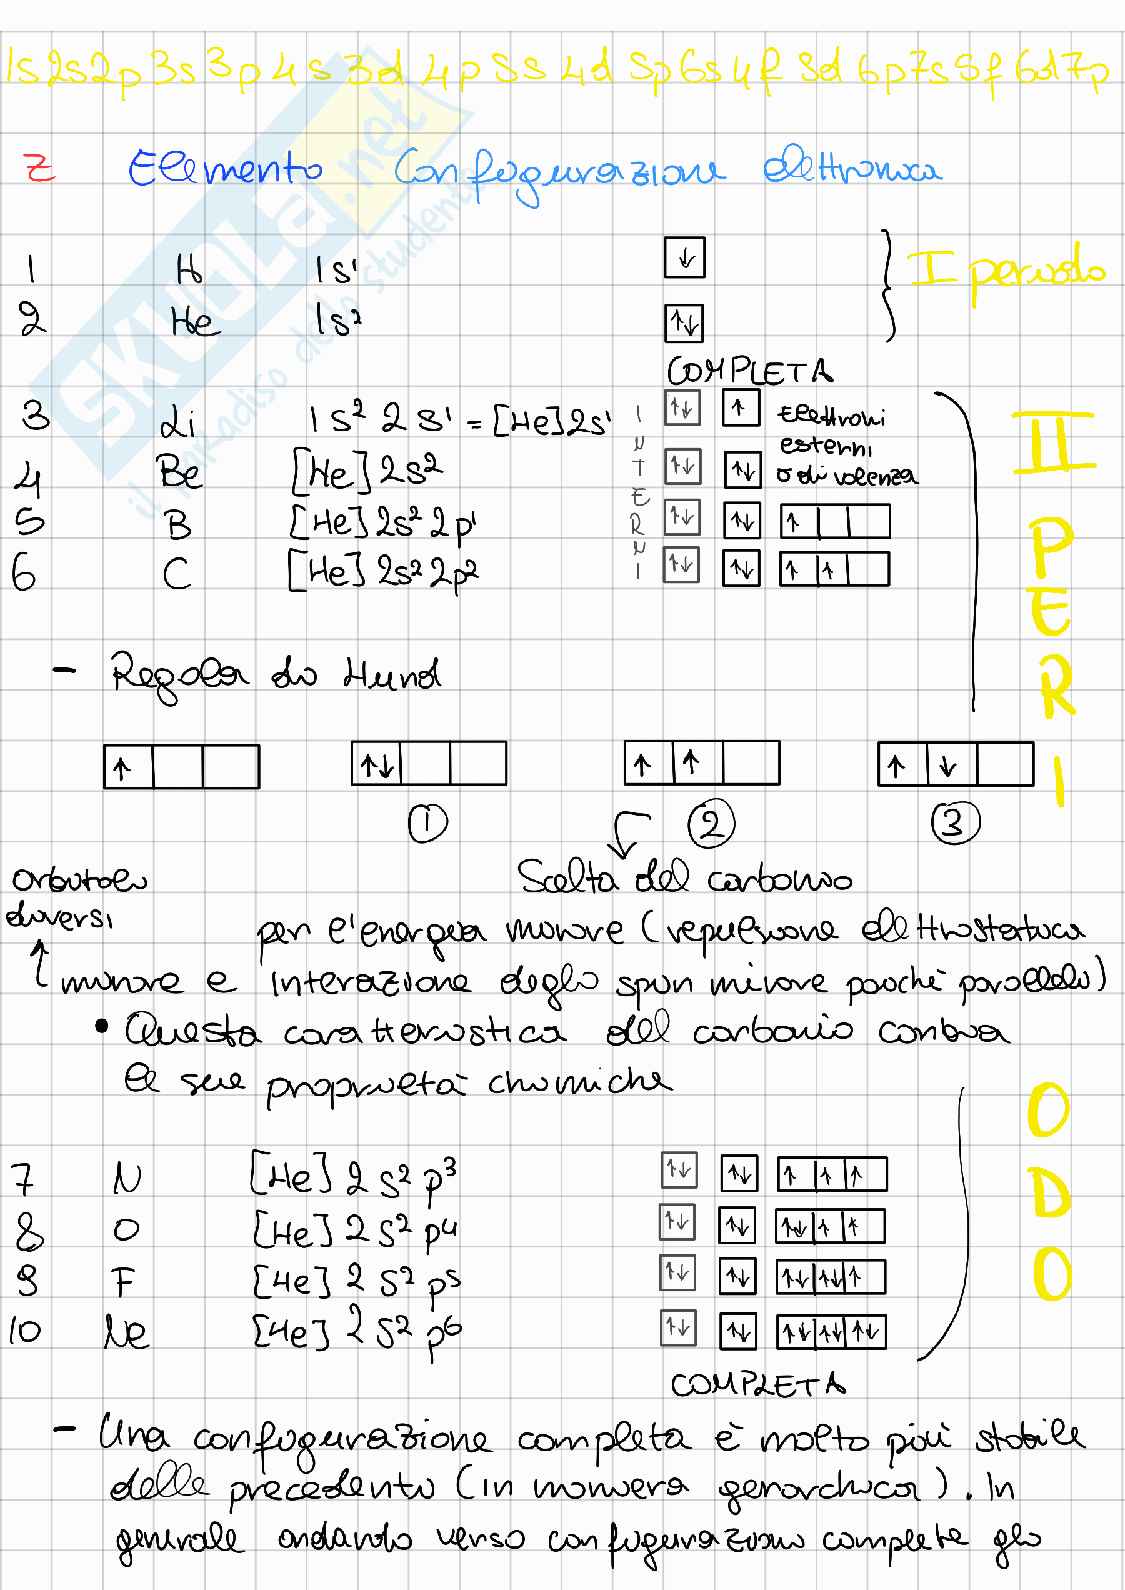 1s 2s 2p 3s 3p 4s 3d 4p 5s 4d 5p 6s 4f 5d 6p 7s 5f 6d 7p
Z Elemento Configurazione elettronica
1 H 1s¹ ↓ I periodo
2 He 1s² ↑↓
COMPLETA
3 Li 1s² 2s¹ = [He]2s¹ ↑↓ ↑ elettroni
esterni
4 Be [He] 2s² ↑↓ ↑↓ o di valenza
5 B [He] 2s² 2p¹ ↑↓ ↑↓ ↑
6 C [He] 2s² 2p² ↑↓ ↑↓ ↑ ↑
INTERNI
II PERIODO
- Regola di Hund
↑ ↑↓ ↑ ↑ ↑ ↓
① ② ③
orbitali Scelta del carbonio
diversi per l'energia minore (repulsione elettrostatica
minore e interazione degli spin minore poichè paralleli)
• Questa caratteristica del carbonio cambia
le sue proprietà chimiche
7 N [He] 2s² p³ ↑↓ ↑↓ ↑ ↑ ↑
8 O [He] 2s² p⁴ ↑↓ ↑↓ ↑↓ ↑ ↑
9 F [He] 2s² p⁵ ↑↓ ↑↓ ↑↓ ↑↓ ↑
10 Ne [He] 2s² p⁶ ↑↓ ↑↓ ↑↓ ↑↓ ↑↓
COMPLETA
- Una configurazione completa è molto più stabile
delle precedenti (in maniera gerarchica). In
generale andando verso configurazioni complete gli
SKUOLA.net
il paradiso dello studente